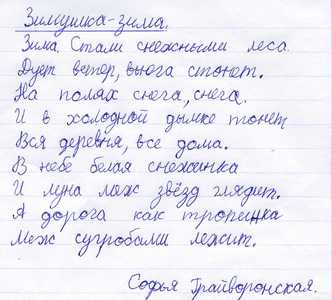 Зимушка-зима.
Зима. Стали снежными леса.
Дует ветер, вьюга стонет.
На полях снега, снега.
И в холодной дымке тонет
Вся деревня, все дома.
В небе белая снежинка
И луна меж звёзд глядит.
А дорога как тропинка
Меж сугробами лежит.
Софья Грайворонская.